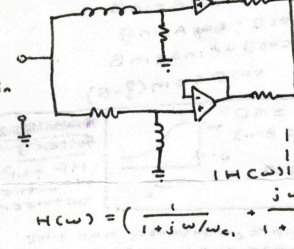 in
- +
|H(ω)|
H(ω) = ( 1 / 1 + j ω/ωc₁ + j ω / 1 +